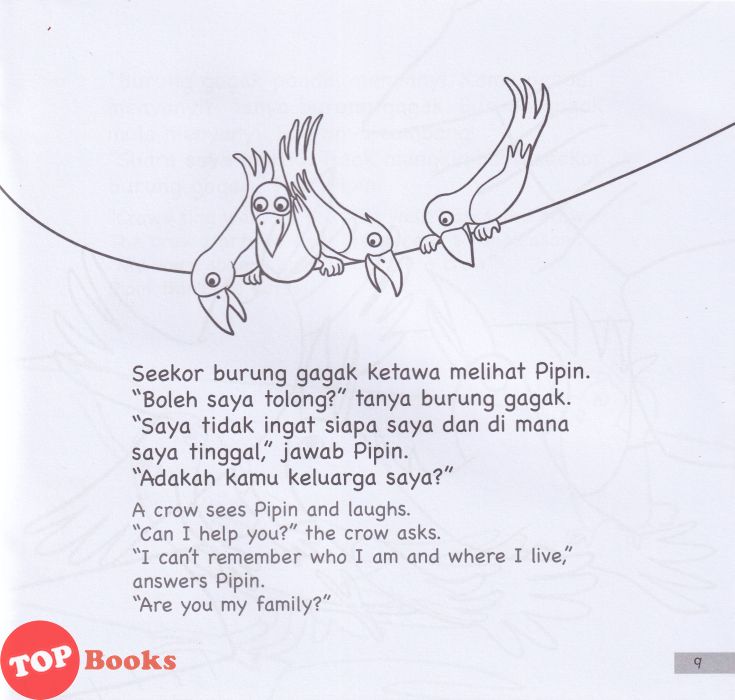 Seekor burung gagak ketawa melihat Pipin.
“Boleh saya tolong?” tanya burung gagak.
“Saya tidak ingat siapa saya dan di mana
saya tinggal,” jawab Pipin.
“Adakah kamu keluarga saya?”
A crow sees Pipin and laughs.
“Can I help you?” the crow asks.
“I can’t remember who I am and where I live,”
answers Pipin.
“Are you my family?”
TOP Books
9